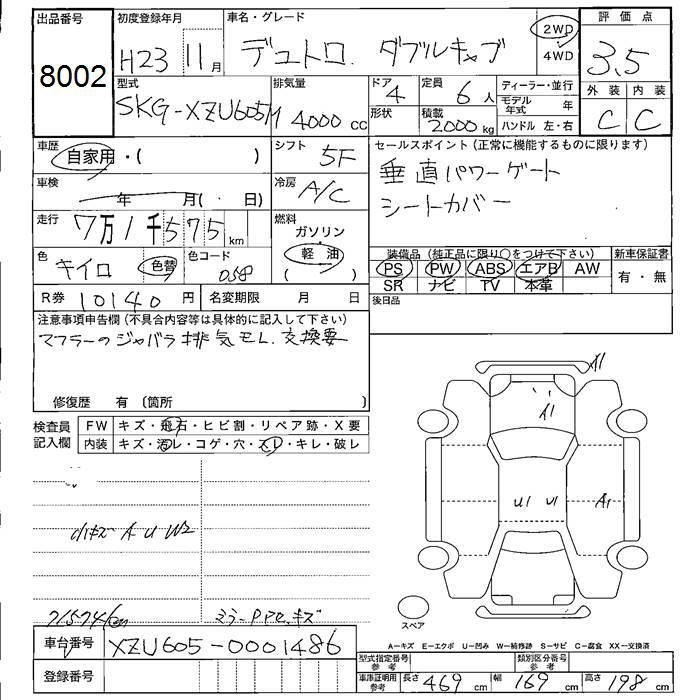 出品番号 初度登録年月 車名・グレード 評価点
8002 H23 11月 デュトロ ダブルキャブ 2WD 4WD 3.5
型式 排気量 ドア 定員 ディーラー・並行 外装 内装
SKG-XZU605M 4000cc 4 6人 モデル年式 年 C C
形状 積載 2000kg ハンドル 左・右
車歴 自家用・( ) シフト 5F セールスポイント(正常に機能するものに限ります)
車検 年 月(・日) 冷房 A/C 垂直パワーゲート
シートカバー
走行 7万1千575km 燃料 ガソリン 軽油 ( )
色 キイロ 色替 色コード 058 装備品(純正品に限り○をつけて下さい) 新車保証書
PS PW ABS エアB AW 有・無
SR ナビ TV 本革
R券 10140円 名変期限 月 日 後日品
注意事項申告欄(不具合内容等は具体的に記入して下さい)
マフラーのジャバラ排気モレ.交換要
修復歴 有 (箇所 )
検査員記入欄 FW キズ・飛石・ヒビ割・リペア跡・X要
内装 キズ・汚レ・コゲ・穴・スレ・キレ・破レ
A1
A1
U1 U1 A1
小キズ A U W2
71574km ミラーP.アセ.キズ
スペア
A-キズ E-エクボ U-凹み W-補修跡 S-サビ C-腐食 XX-交換済
車台番号 XZU605-0001486
型式指定番号参考 類別区分番号参考
登録番号 車庫証明用参考 長さ 469cm 幅 169cm 高さ 198cm